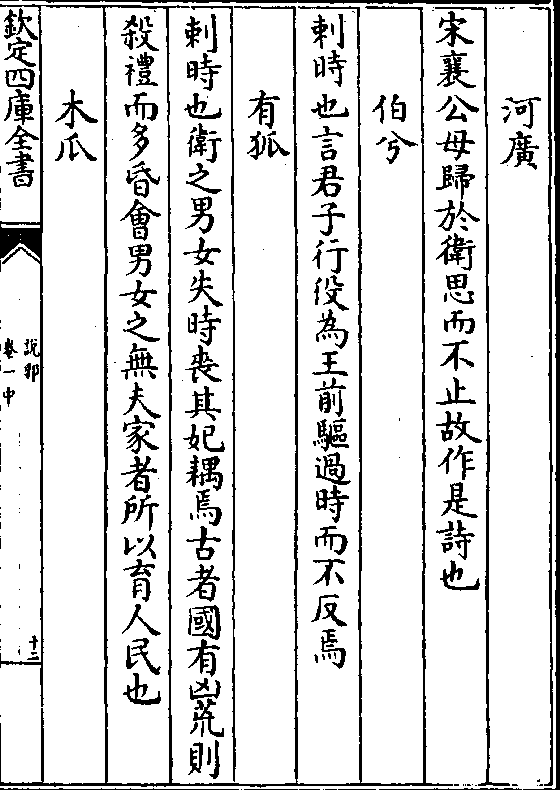 河廣
宋襄公母歸於衛思而不止故作是詩也
伯兮
刺時也言君子行役為王前驅過時而不反焉
有狐
刺時也衛之男女失時喪其妃耦焉古者國有凶荒則
殺禮而多昏會男女之無夫家者所以育人民也
木瓜
欽定四庫全書
說郛
卷一中
十二